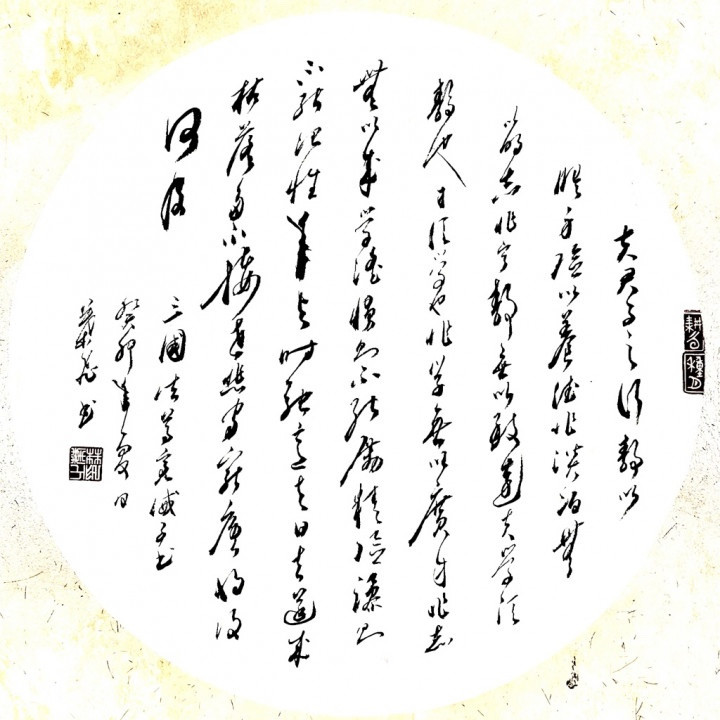 夫君子之行静以
修身俭以養德非淡泊無
以明志非宁静無以致遠夫學须
静也才须學也非學無以廣才非志
無以成學淫慢则不能励精险躁则
不能治性年与时驰意与日去遂成
枯落多不接世悲守穷廬将復
何及
三國诸葛亮诫子书
癸卯年夏日
书